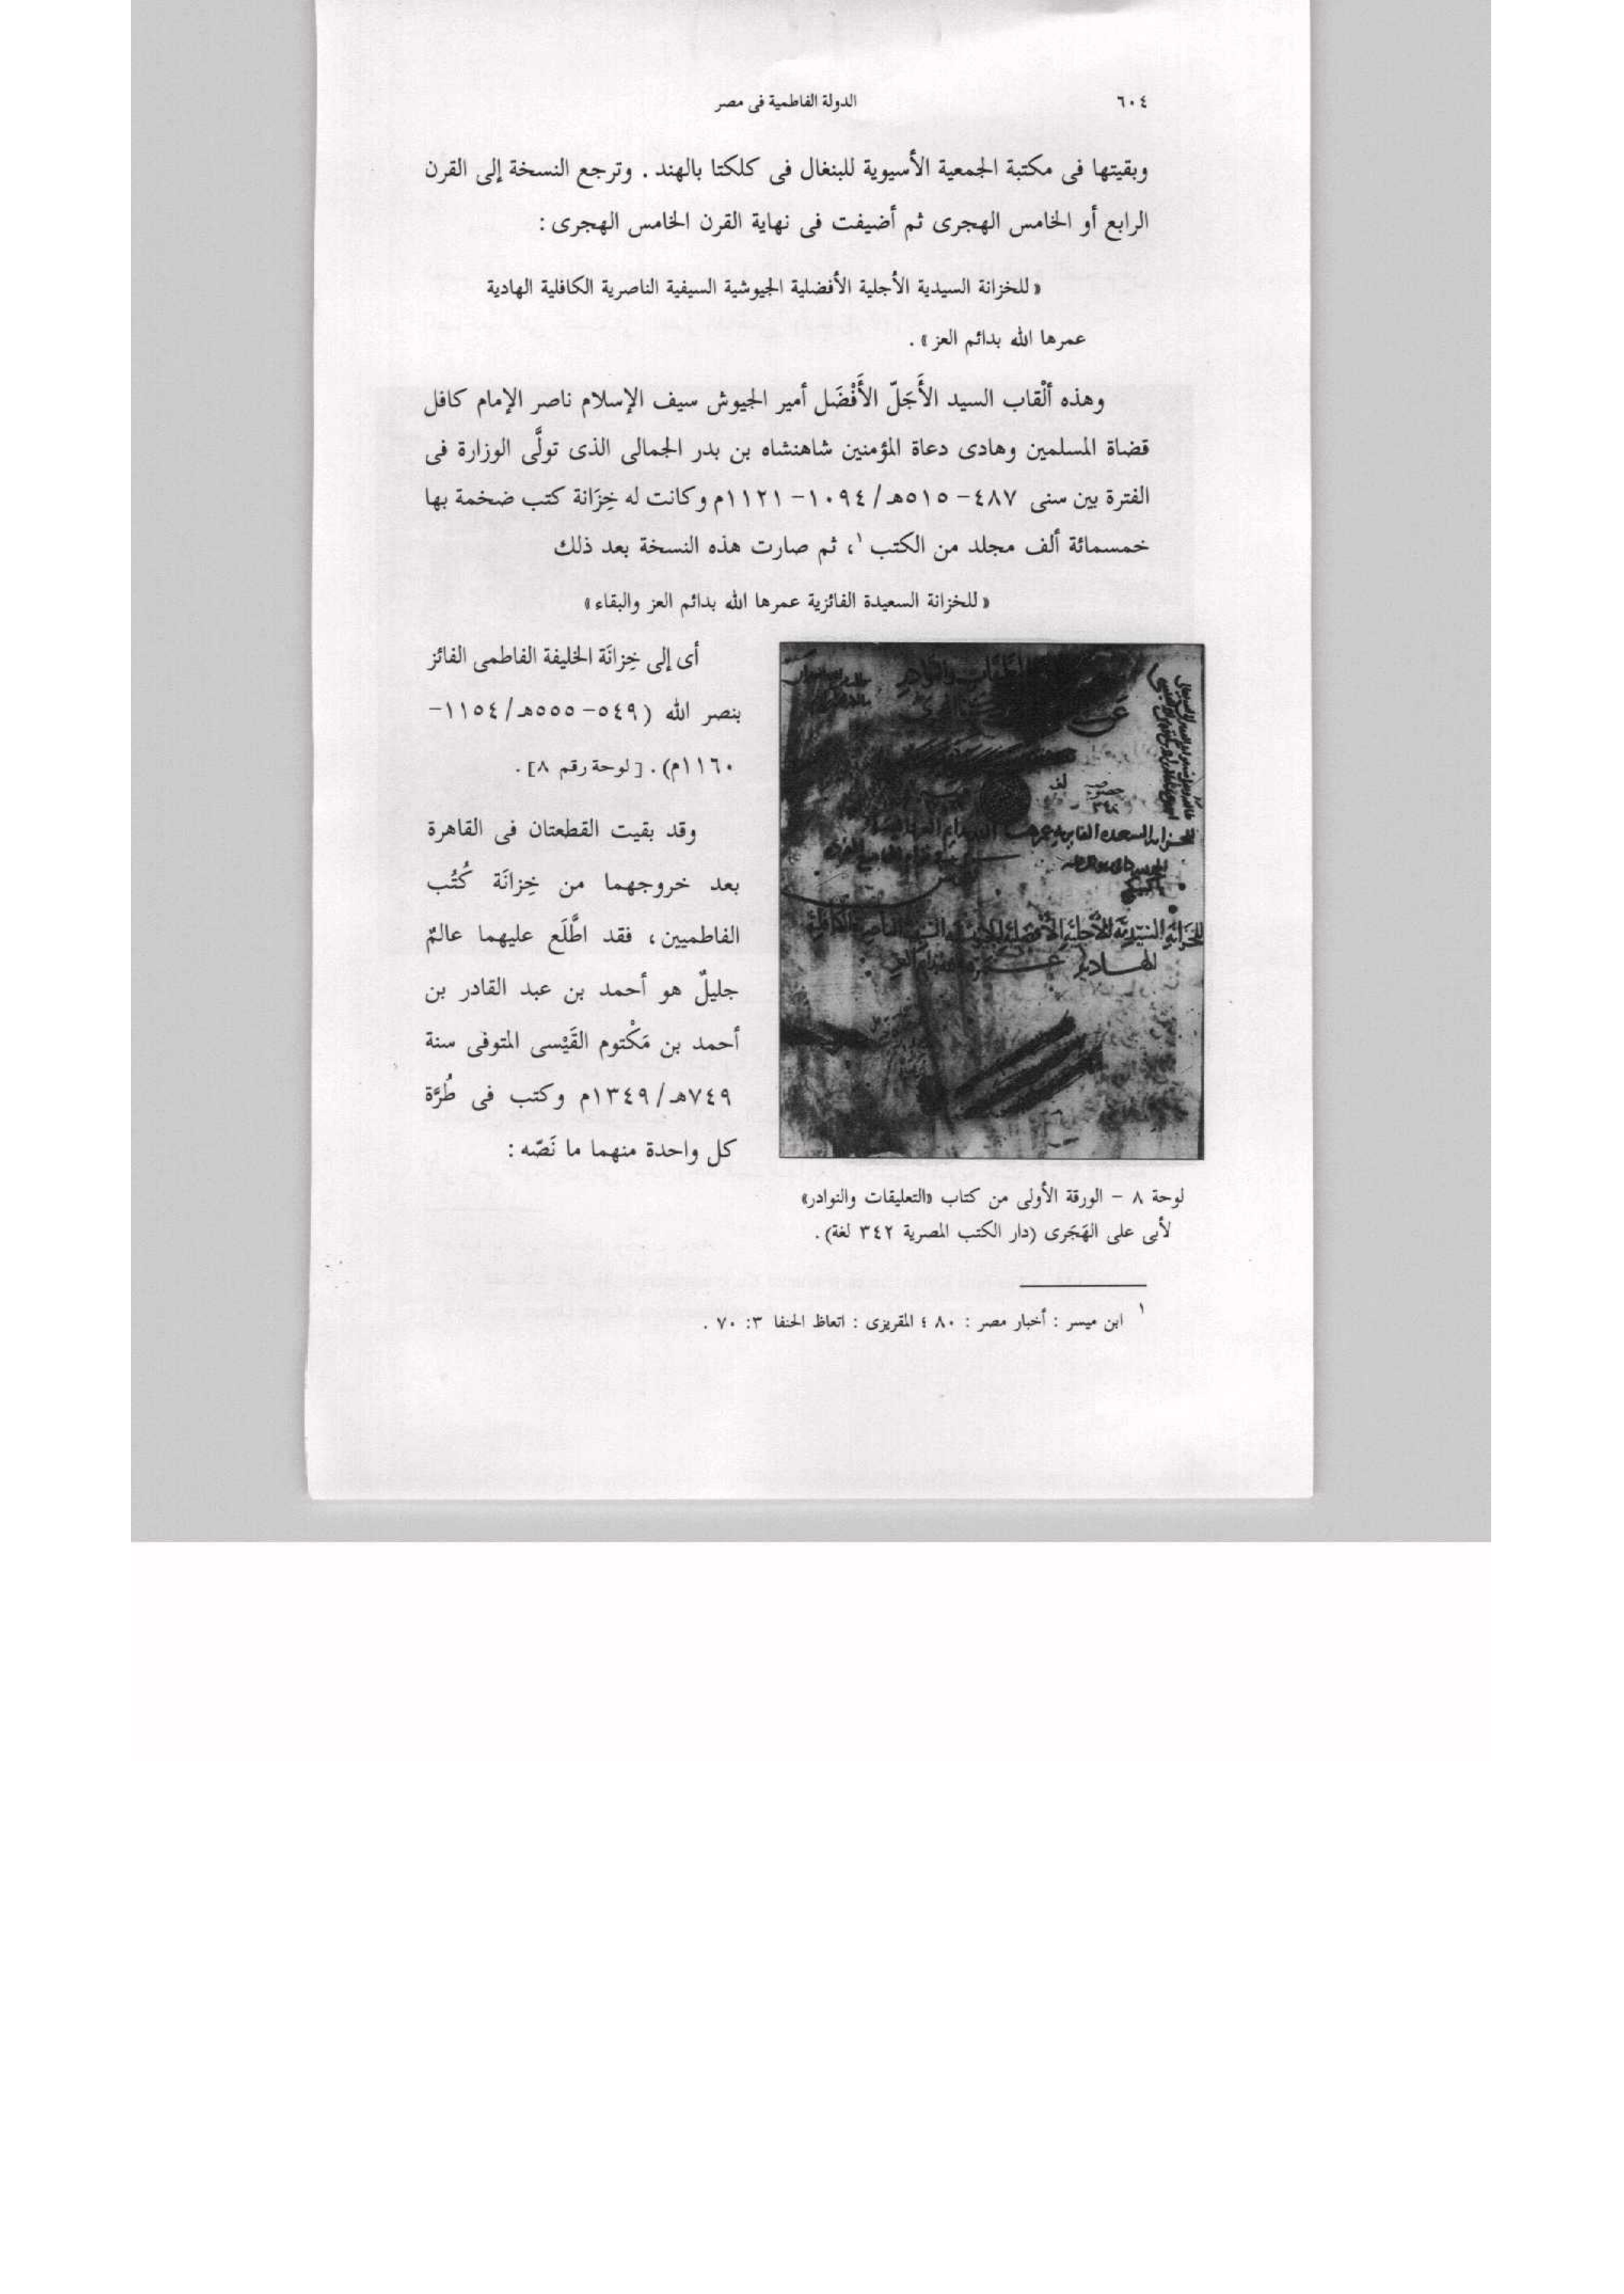 ٦٠٤
الدولة الفاطمية فى مصر
وبقيتها فى مكتبة الجمعية الأسيوية للبنغال فى كلكتا بالهند . وترجع النسخة إلى القرن
الرابع أو الخامس الهجرى ثم أضيفت فى نهاية القرن الخامس الهجرى :
« للخزانة السيدية الأجلية الأفضلية الجيوشية السيفية الناصرية الكافلية الهادية
عمرها الله بدائم العز » .
وهذه ألْقاب السيد الأَجَلّ الأَفْضَل أمير الجيوش سيف الإسلام ناصر الإمام كافل
قضاة المسلمين وهادى دعاة المؤمنين شاهنشاه بن بدر الجمالى الذى تولَّى الوزارة فى
الفترة بين سنى ٤٨٧- ٥١٥هـ/ ١٠٩٤- ١١٢١م وكانت له خِزَانة كتب ضخمة بها
خمسمائة ألف مجلد من الكتب ١، ثم صارت هذه النسخة بعد ذلك
« للخزانة السعيدة الفائزية عمرها الله بدائم العز والبقاء »
أى إلى خِزانَة الخليفة الفاطمى الفائز
بنصر الله (٥٤٩- ٥٥٥هـ/ ١١٥٤-
١١٦٠م) . [لوحة رقم ٨] .
وقد بقيت القطعتان فى القاهرة
بعد خروجهما من خِزانَة كُتُب
الفاطميين، فقد اطَّلَع عليهما عالمٌ
جليلٌ هو أحمد بن عبد القادر بن
أحمد بن مَكْتوم القَيْسى المتوفى سنة
٧٤٩هـ/ ١٣٤٩م وكتب فى طُرَّة
كل واحدة منهما ما نَصّه :
للخزانة السيدية الأجلية الأفضلية
الهادية
لوحة ٨ - الورقة الأولى من كتاب «التعليقات والنوادر»
لأبى على الهَجَرى (دار الكتب المصرية ٣٤٢ لغة) .
١ ابن ميسر : أخبار مصر : ٨٠ ؛ المقريزى : اتعاظ الحنفا ٣: ٧٠ .